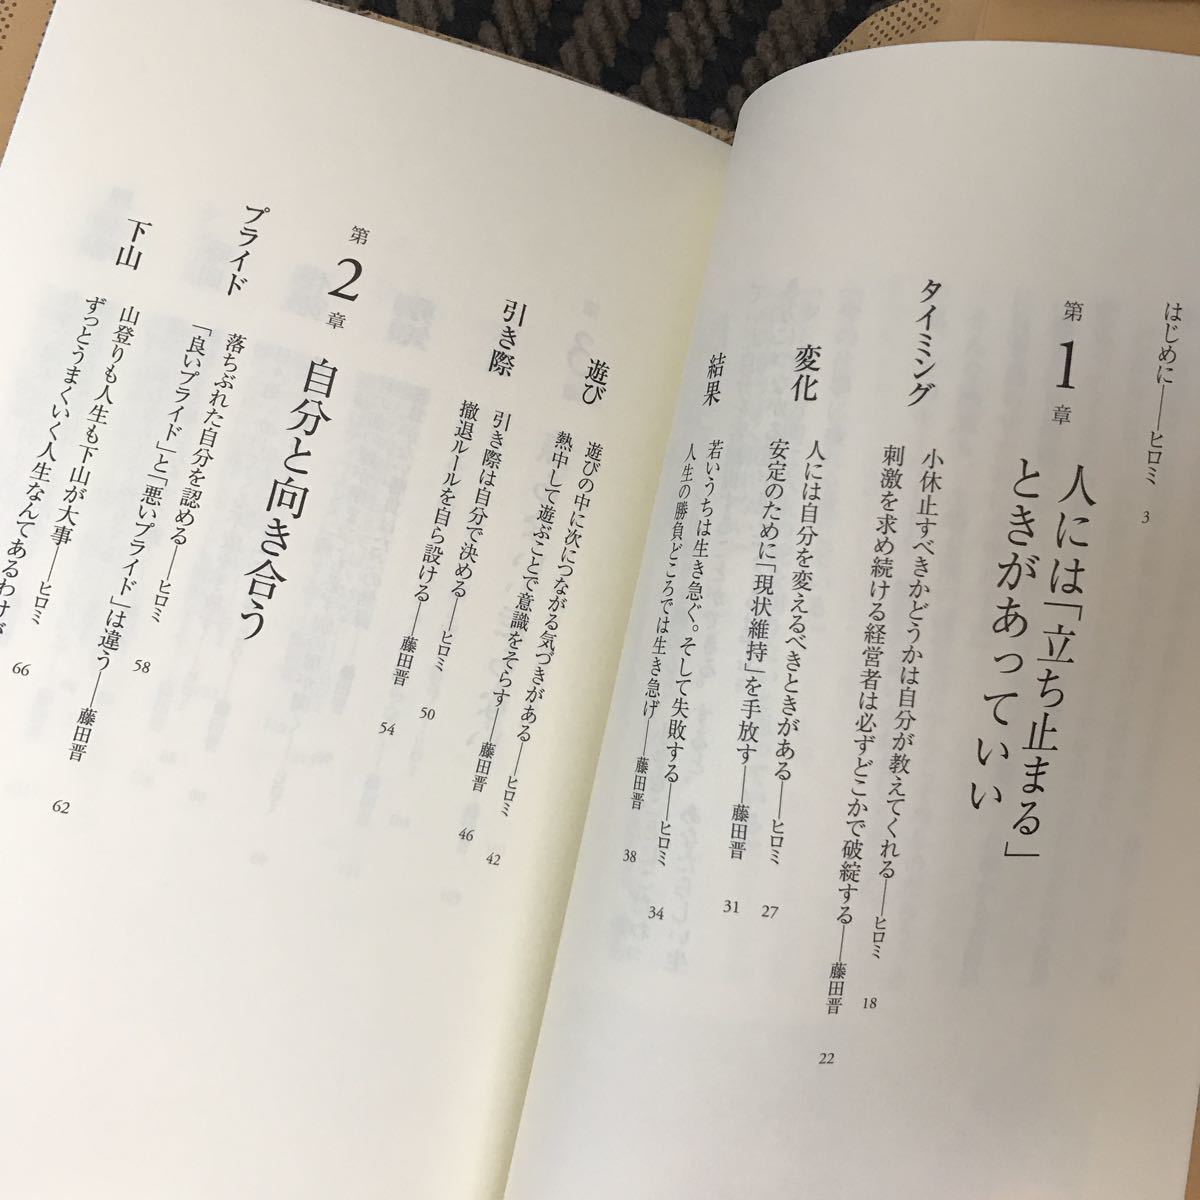 はじめに――ヒロミ 3
第1章 人には「立ち止まる」
ときがあっていい
タイミング
小休止すべきかどうかは自分が教えてくれる――ヒロミ 18
刺激を求め続ける経営者は必ずどこかで破綻する――藤田晋 22
変化
人には自分を変えるべきときがある――ヒロミ 27
安定のために「現状維持」を手放す――藤田晋 31
結果
若いうちは生き急ぐ。そして失敗する――ヒロミ 34
人生の勝負どころでは生き急げ――藤田晋 38
遊び
遊びの中に次につながる気づきがある――ヒロミ 42
熱中して遊ぶことで意識をそらす――藤田晋 46
引き際
引き際は自分で決める――ヒロミ 50
撤退ルールを自ら設ける――藤田晋 54
第2章 自分と向き合う
プライド
落ちぶれた自分を認める――ヒロミ 58
「良いプライド」と「悪いプライド」は違う――藤田晋 62
下山
山登りも人生も下山が大事――ヒロミ 66
ずっとうまくいく人生なんてあるわけが